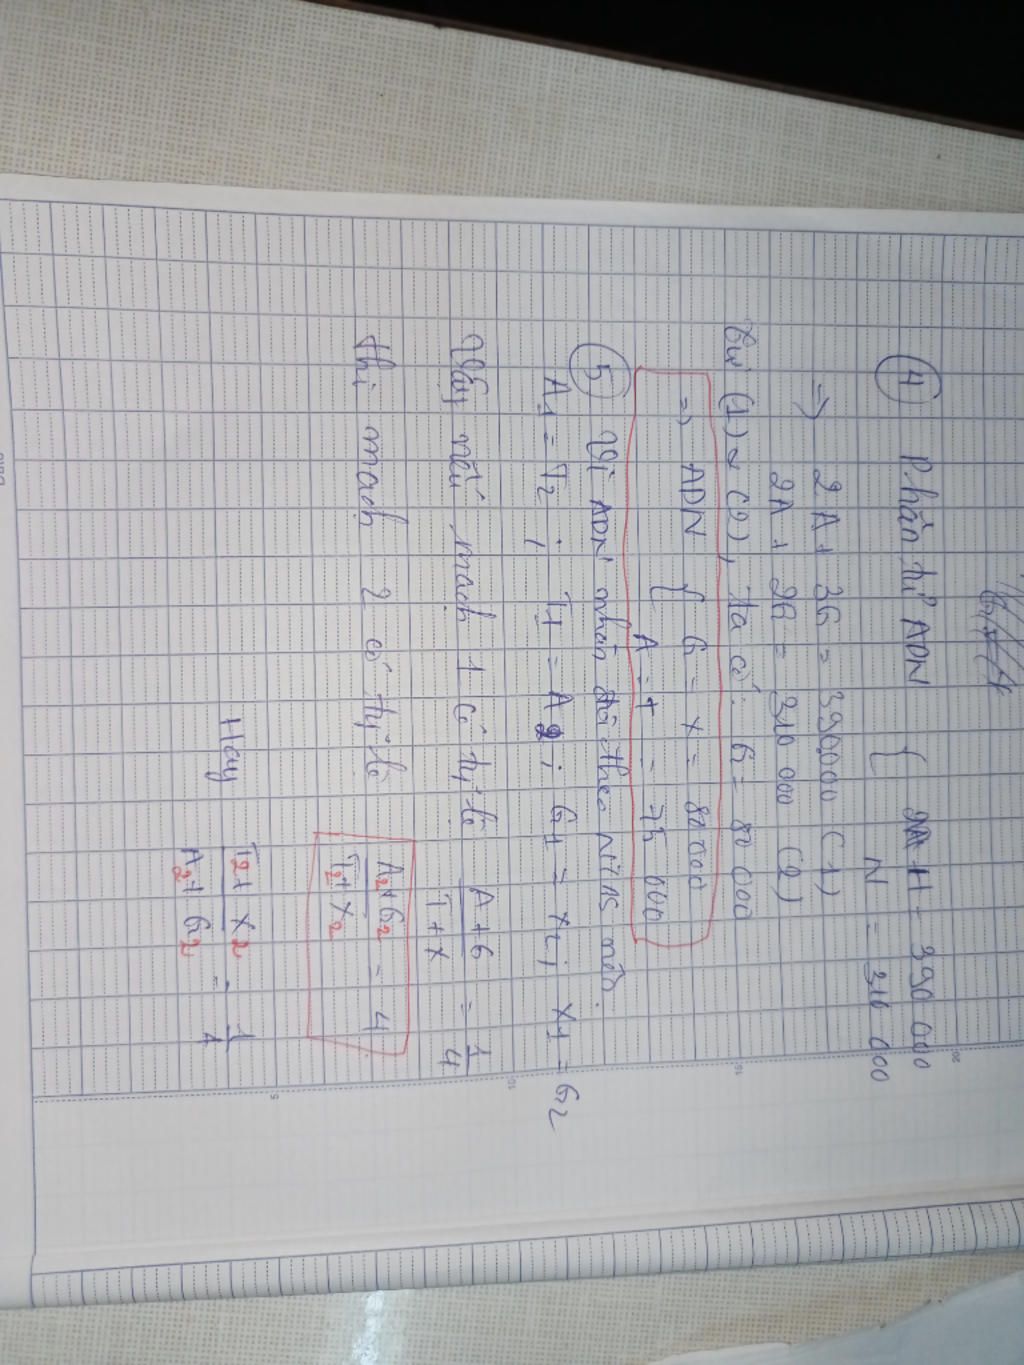 ④ Phân tử ADN { H = 390 000
N = 310 000
=> 2A + 3G = 390000 (1)
2A + 2G = 310 000 (2)
Từ (1) & (2), ta có: G = 80 000
=> ADN { G = X = 80 000
A = T = 75 000
⑤ Vì ADN nhân đôi theo NTBS nên.
A1 = T2 ; T1 = A2 ; G1 = X2 ; X1 = G2
Vậy nếu mạch 1 có tỷ lệ A + G / T + X = 1/4
thì mạch 2 có tỷ lệ A2 + G2 / T2 + X2 = 4
Hay T2 + X2 / A2 + G2 = 1/4
20
15
10
5